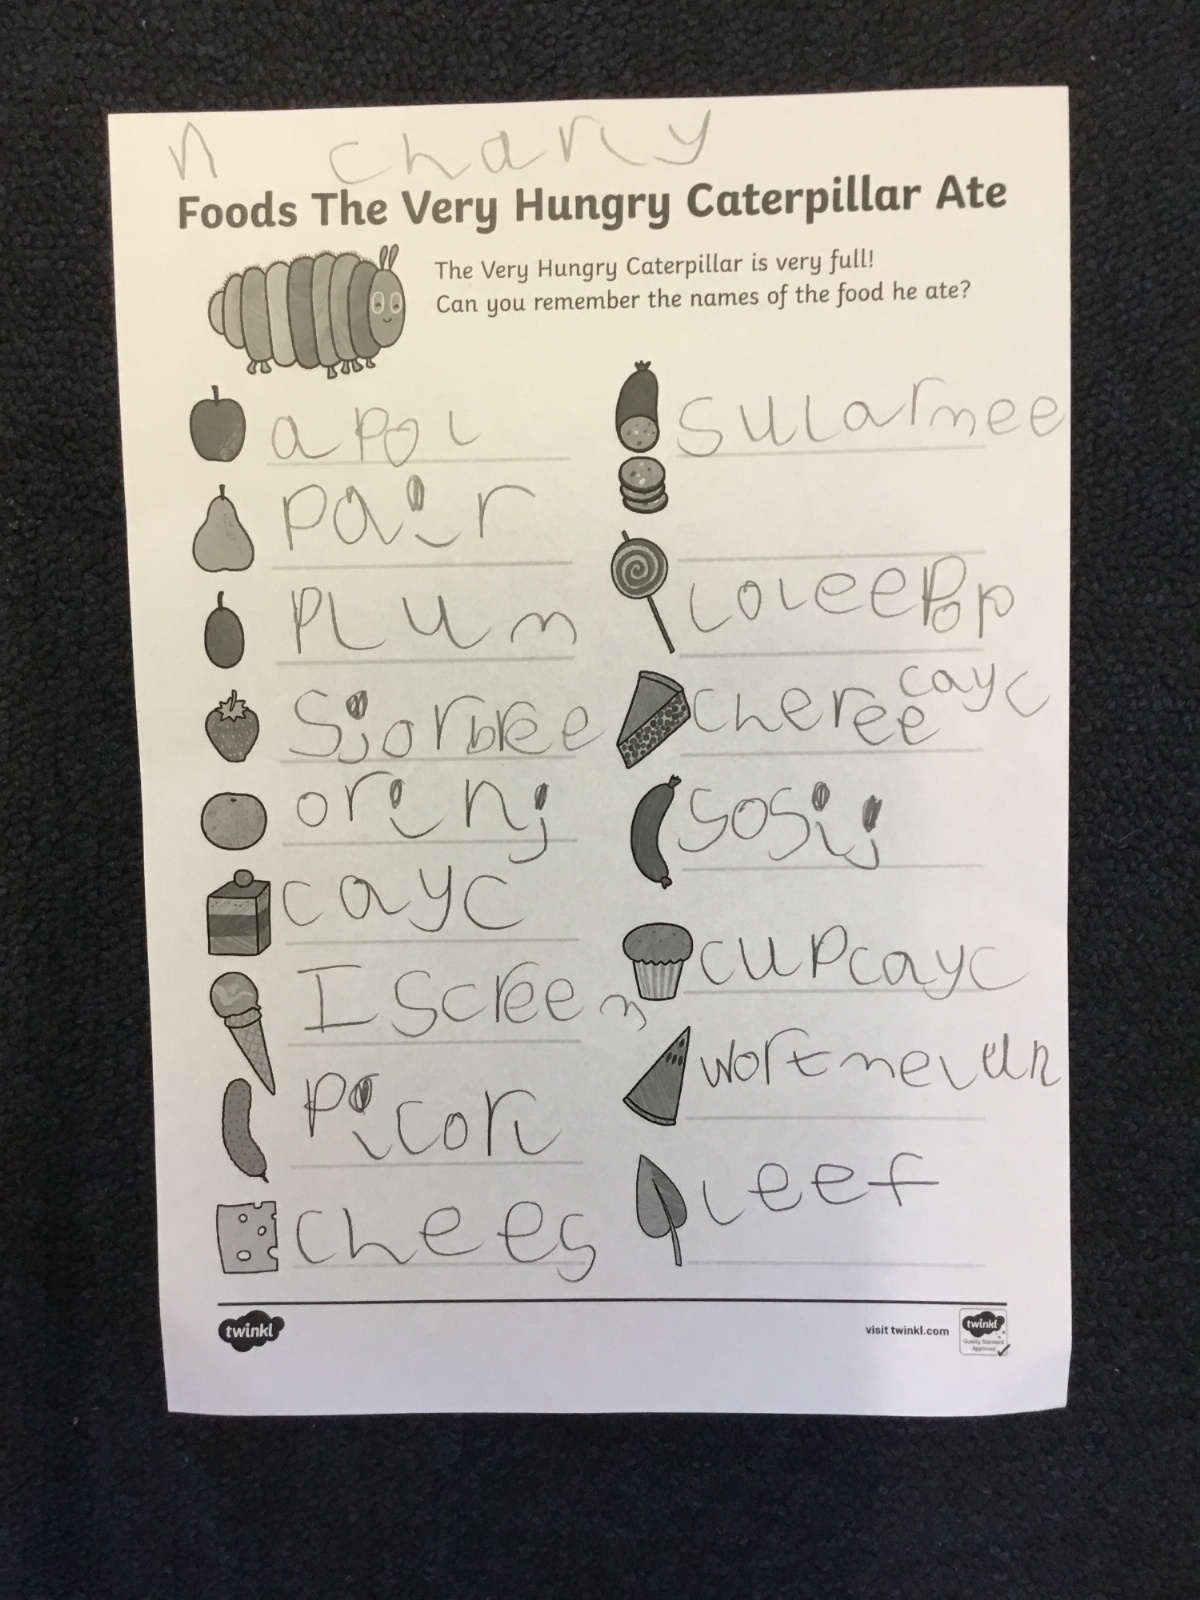 n charly
Foods The Very Hungry Caterpillar Ate
The Very Hungry Caterpillar is very full!
Can you remember the names of the food he ate?
apol
pair
Plum
Sjorbree
orinj
cayc
I Screem
Picorl
chees
sularmee
loleepop
cheree cayc
sosij
cupcayc
wortmelun
leef
twinkl
visit twinkl.com
twinkl
Quality Standard
Approved